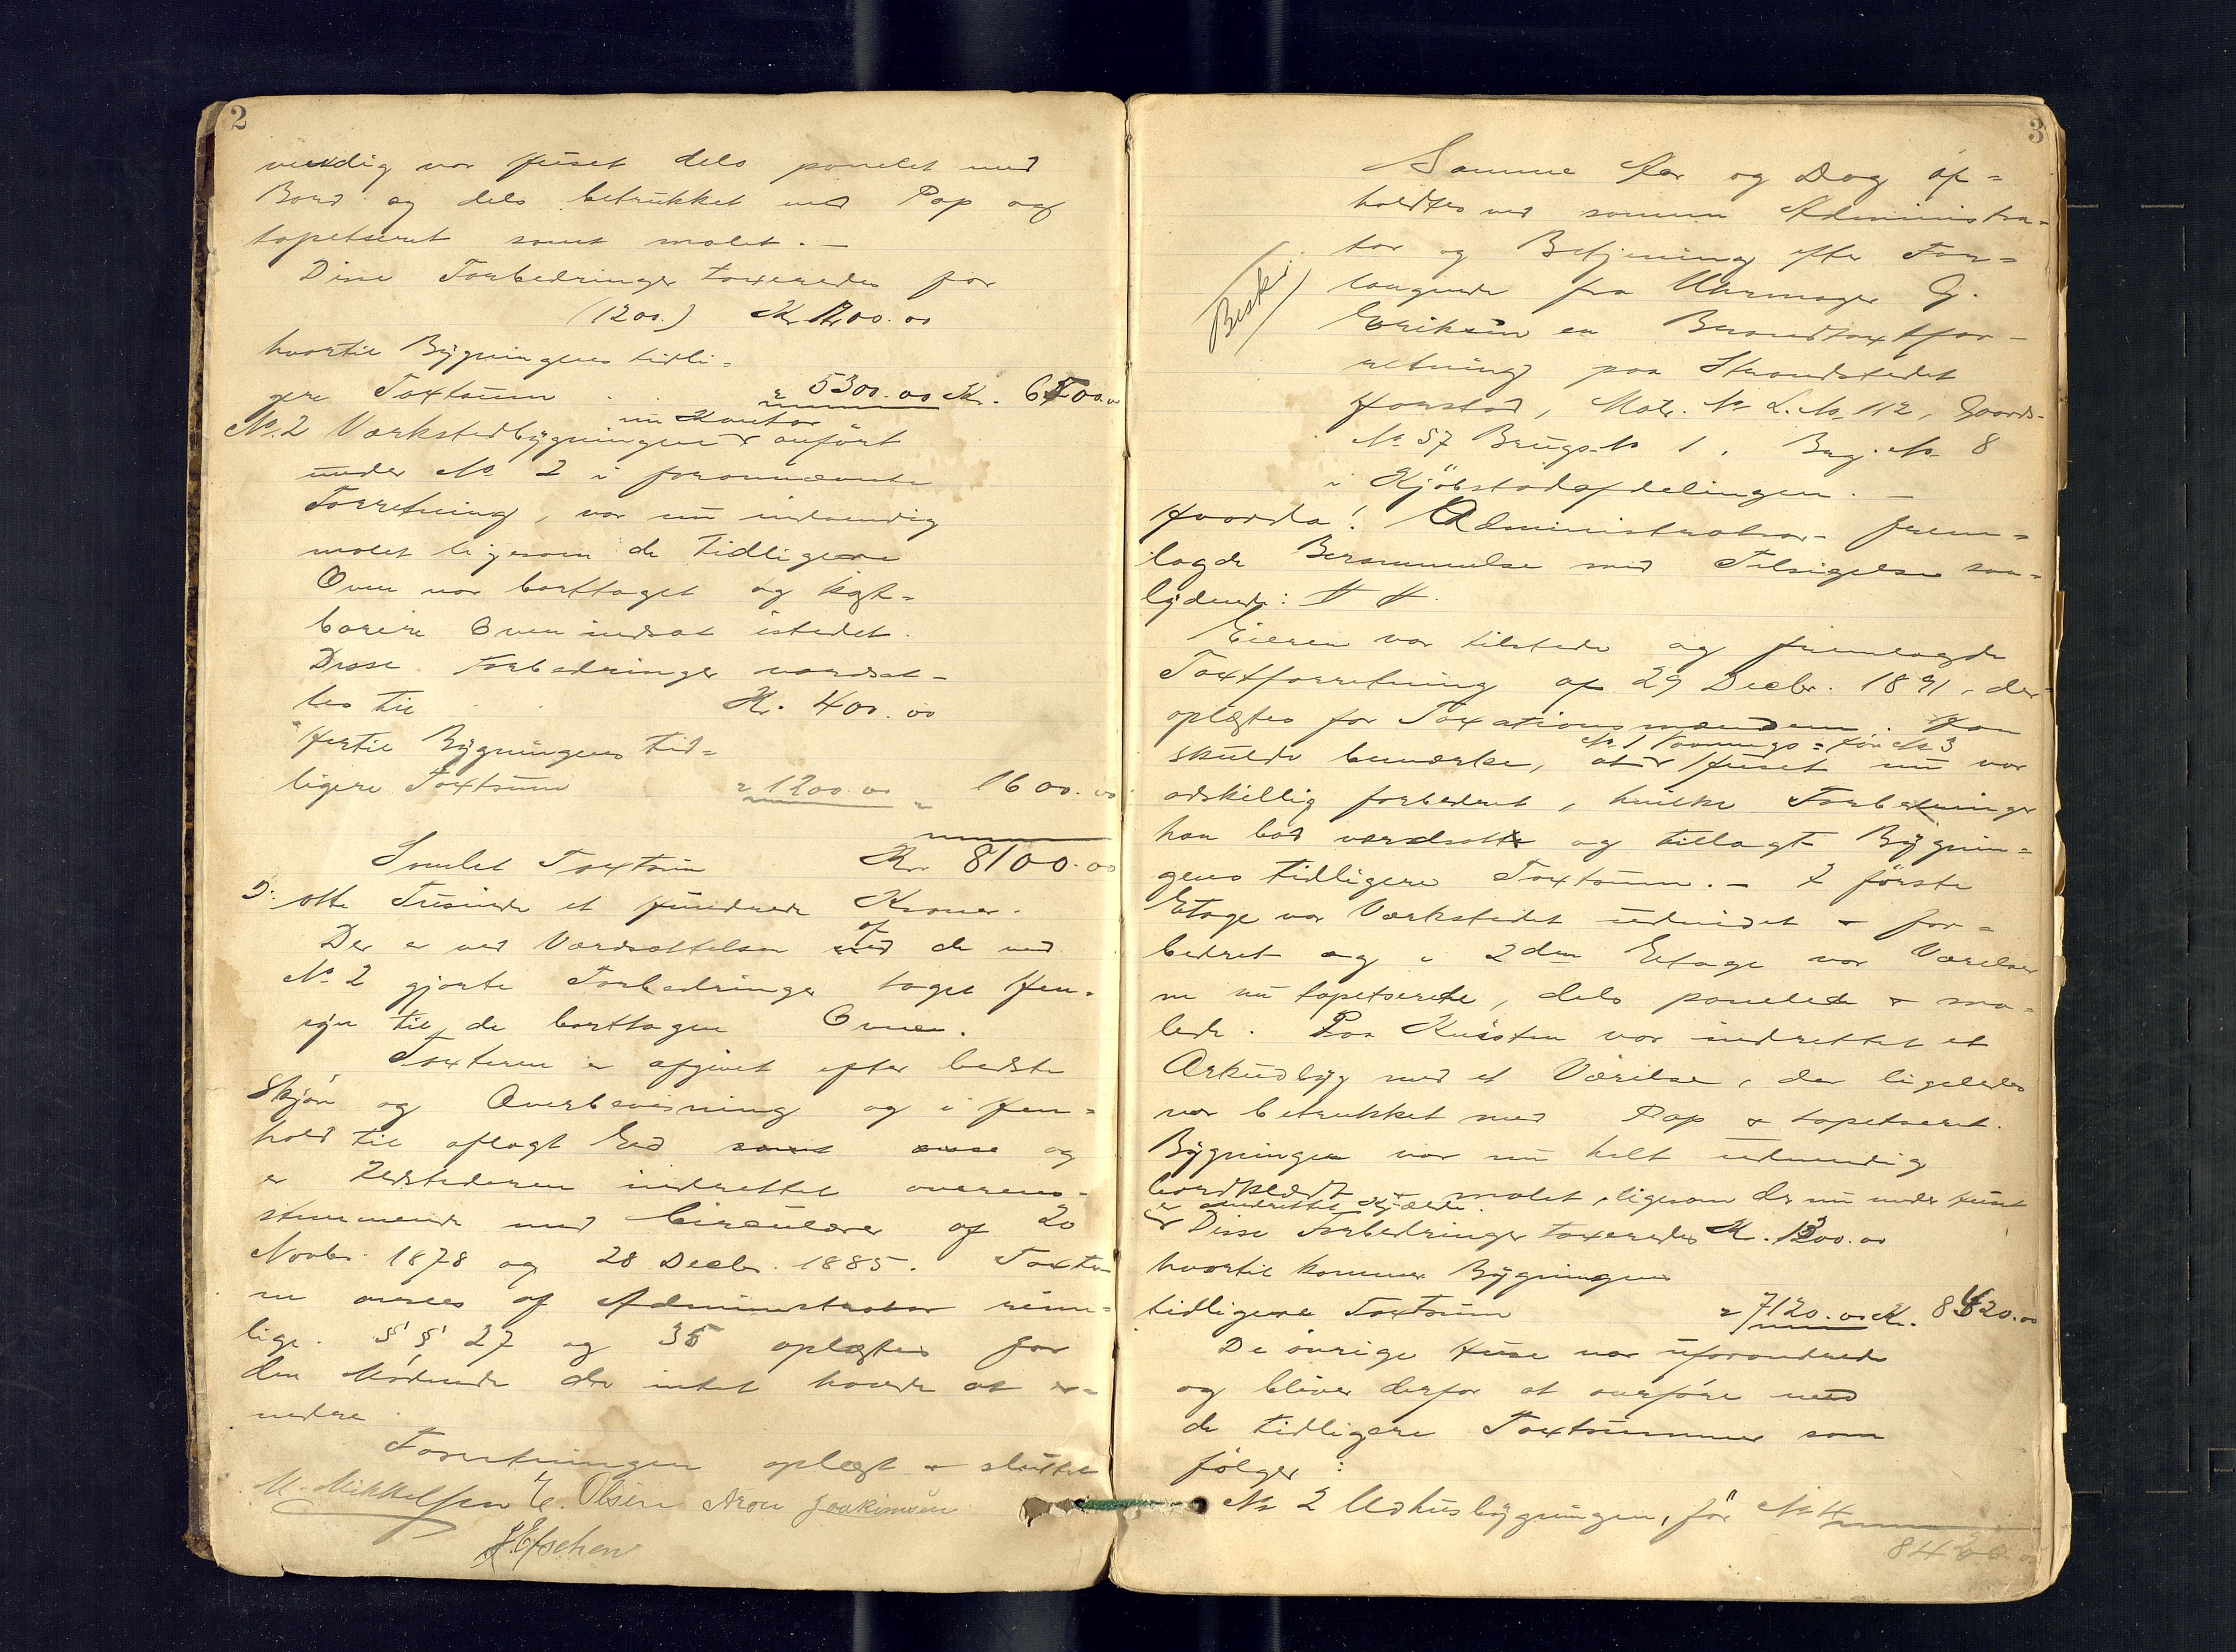 2
vendig var Huset dels panelet med
Bord og dels betrukket med Pap og
tapetseret samt malet. —
Disse Forbedringer taxeredes for
(1200.) Kr. 1200.00
hvortil Bygningens tidli-
gere Taxtsum . . " 5300.00 Kr. 6500.00
nu Kontor
No. 2 Værkstedbygningen anført
under No 2 i forannævnte
Forretning, var nu indvendig
malet ligesom de tidligere
Ovne var borttaget og kost-
barere Ovne indsat istedet.
Disse Forbedringer værdsat-
tes til . . Kr. 400.00
Hertil Bygningens tid-
ligere Taxtsum " 1200.00 " 1600.00
Samlet Taxtsum Kr. 8100.00
ɔ: otte Tusinde et Hundrede Kroner.
af
Der er ved Værdsættelsen med de ved
No. 2 gjorte Forbedringer taget Hen-
syn til de borttagne Ovne.
Taxterne er afgivet efter bedste
Skjøn og Overbevisning og i Hen-
hold til aflagt Ed samt og
er Ildstederne indrettet overens-
stemmende med Circulære af 20
Novbr. 1878 og 28 Decbr. 1885. Taxter-
ne ansees af Administrator rime-
lige. §§ 27 og 35 oplæstes for
den Mødende der intet havde at er-
indre.
Forretningen oplæst & sluttet
M. Mikkelsen E. Olsen Aron Joakimsen
3
Samme Aar og Dag af-
holdtes ved samme Administra-
tor og Betjening efter For-
langende fra Uhrmager G.
Beskr.
Eriksen en Brandtaxtfor-
retning paa Strandstedet
Harstad, Matr. No L. No 112, Gaards-
No 57 Brugs No 1, Byg. No 8
i Kjøbstadafdelingen. —
Hvorda! Administrator frem-
lagde Berammelse med Tilsigelse saa-
lydende:
Eieren var tilstede og fremlagde
Taxtforretning af 29 Decbr. 1891, der
oplæstes for Taxationsmændene. Han
No. 1 Vaanings- før No 3
skulde bemærke, at Huset nu var
adskillig forbedret, hvilke Forbedringer
han bad værdsatte og tillagt Bygnin-
gens tidligere Taxtsum. — I første
Etage var Værkstedet udvidet & for-
bedret og i 2den Etage var Værelser-
ne nu tapetserede, dels panelede & ma-
lede. Paa Kvisten var indrettet et
Arkudbyg med et Værelse, der ligeledes
var betrukket med Pap & tapetseret.
Bygningen var nu helt udvendig
bordklædt & malet, ligesom der nu under Huset
er indrettet Kjælder.
Disse Forbedringer taxeredes Kr. 1300.00
hvortil kommer Bygningens
tidligere Taxtsum " 7120.00 Kr. 8420.00
De øvrige Huse var uforandrede
og bliver derfor at overføre med
de tidligere Taxtsummer som
følger:
No 2 Udhusbygningen, før No 4